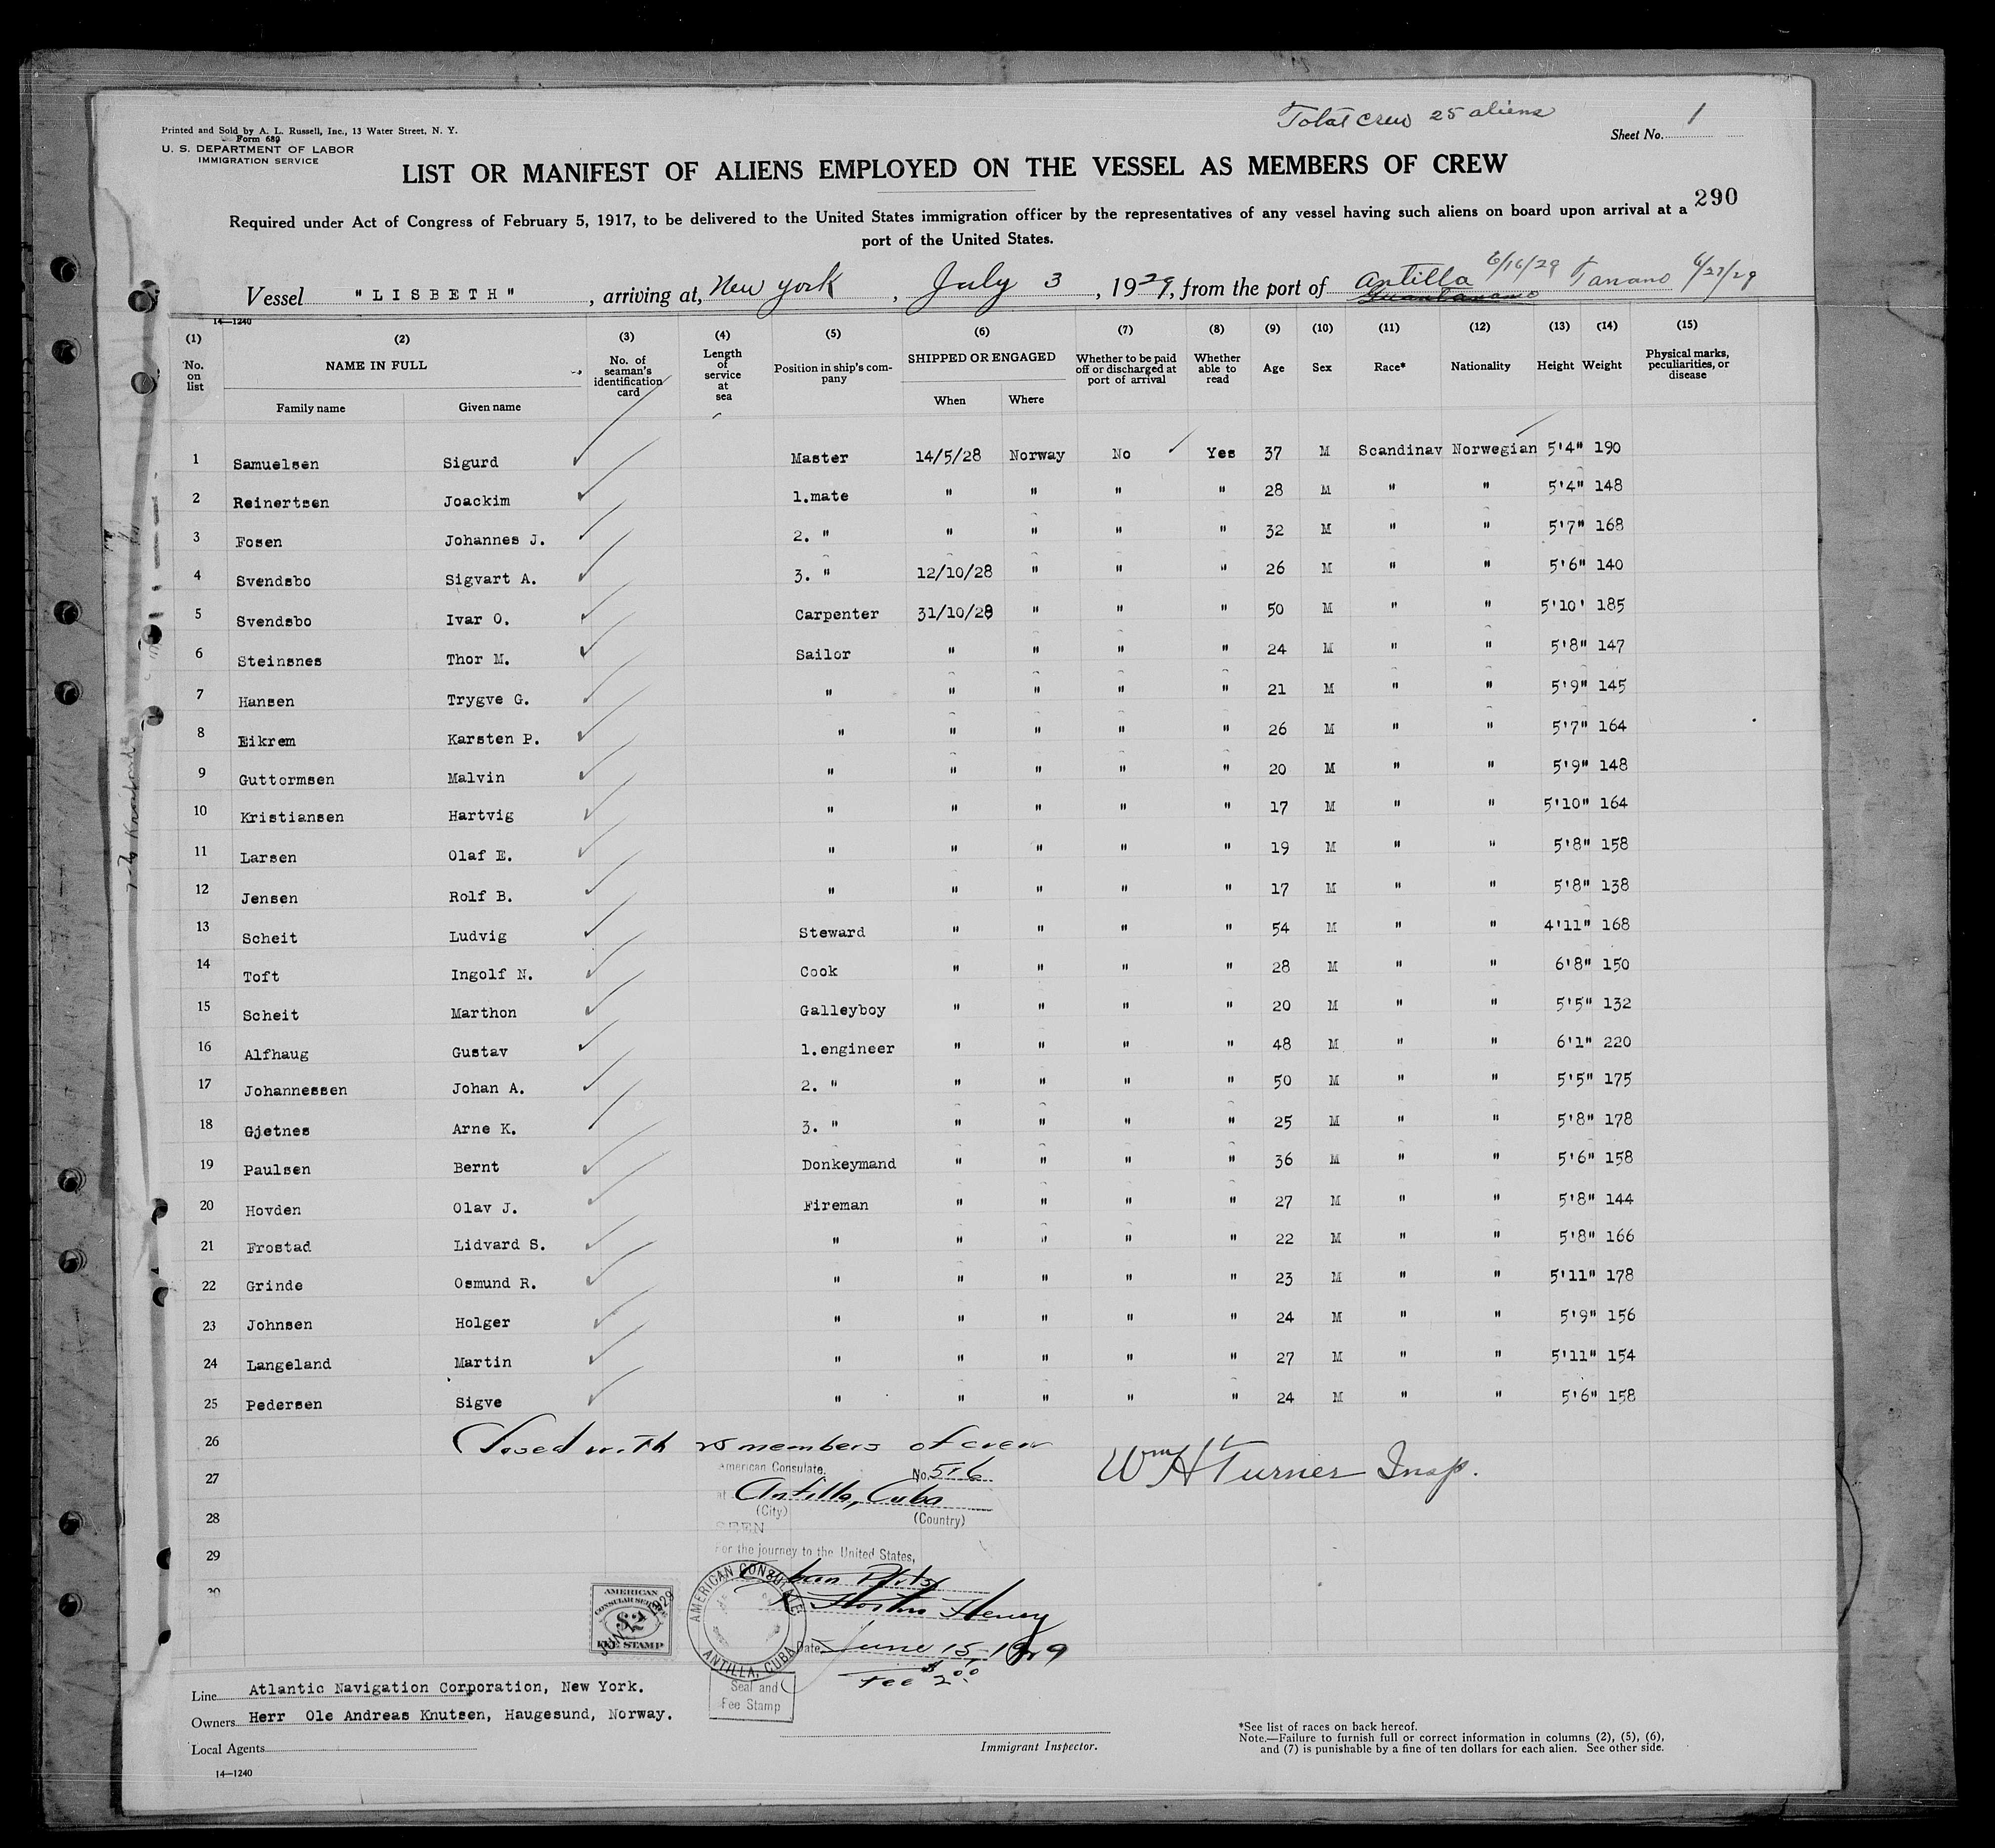 Total crew 25 aliens
Printed and Sold by A. L. Russell, Inc., 13 Water Street, N. Y.
Form 689
U. S. DEPARTMENT OF LABOR
IMMIGRATION SERVICE
Sheet No. 1
LIST OR MANIFEST OF ALIENS EMPLOYED ON THE VESSEL AS MEMBERS OF CREW
290
Required under Act of Congress of February 5, 1917, to be delivered to the United States immigration officer by the representatives of any vessel having such aliens on board upon arrival at a
port of the United States.
Vessel "LISBETH", arriving at, New York, July 3, 1929, from the port of Antilla 6/16/29 Tanamo 6/27/29
Guantanamo
14—1240
(1) (2) (3) (4) (5) (6) (7) (8) (9) (10) (11) (12) (13) (14) (15)
No. on list NAME IN FULL No. of seaman's identification card Length of service at sea Position in ship's company SHIPPED OR ENGAGED Whether to be paid off or discharged at port of arrival Whether able to read Age Sex Race* Nationality Height Weight Physical marks, peculiarities, or disease
Family name Given name When Where
1 Samuelsen Sigurd Master 14/5/28 Norway No Yes 37 M Scandinav Norwegian 5'4" 190
2 Reinertsen Joackim 1.mate " " " " 28 M " " 5'4" 148
3 Fosen Johannes J. 2. " " " " " 32 M " " 5'7" 168
4 Svendsbo Sigvart A. 3. " 12/10/28 " " " 26 M " " 5'6" 140
5 Svendsbo Ivar O. Carpenter 31/10/28 " " " 50 M " " 5'10' 185
6 Steinsnes Thor M. Sailor " " " " 24 M " " 5'8" 147
7 Hansen Trygve G. " " " " " 21 M " " 5'9" 145
8 Eikrem Karsten P. " " " " " 26 M " " 5'7" 164
9 Guttormsen Malvin " " " " " 20 M " " 5'9" 148
10 Kristiansen Hartvig " " " " " 17 M " " 5'10" 164
11 Larsen Olaf E. " " " " " 19 M " " 5'8" 158
12 Jensen Rolf B. " " " " " 17 M " " 5'8" 138
13 Scheit Ludvig Steward " " " " 54 M " " 4'11" 168
14 Toft Ingolf N. Cook " " " " 28 M " " 6'8" 150
15 Scheit Marthon Galleyboy " " " " 20 M " " 5'5" 132
16 Alfhaug Gustav 1.engineer " " " " 48 M " " 6'1" 220
17 Johannessen Johan A. 2. " " " " " 50 M " " 5'5" 175
18 Gjetnes Arne K. 3. " " " " " 25 M " " 5'8" 178
19 Paulsen Bernt Donkeymand " " " " 36 M " " 5'6" 158
20 Hovden Olav J. Fireman " " " " 27 M " " 5'8" 144
21 Frostad Lidvard S. " " " " " 22 M " " 5'8" 166
22 Grinde Osmund R. " " " " " 23 M " " 5'11" 178
23 Johnsen Holger " " " " " 24 M " " 5'9" 156
24 Langeland Martin " " " " " 27 M " " 5'11" 154
25 Pedersen Sigve " " " " " 24 M " " 5'6" 158
26 Closed with 25 members of crew
27 American Consulate, No. 516 Wm H Turner Insp.
at Antilla, Cuba
28 (City) (Country)
SEEN
29 For the journey to the United States,
30
AMERICAN CONSULAR SERVICE $2 FEE STAMP
AMERICAN CONSULATE ANTILLA, CUBA
Horton Henry
Date June 15-1929
Fee $2.00
Seal and
Fee Stamp
Line Atlantic Navigation Corporation, New York.
Owners Herr Ole Andreas Knutsen, Haugesund, Norway.
Local Agents
Immigrant Inspector.
*See list of races on back hereof.
Note.—Failure to furnish full or correct information in columns (2), (5), (6),
and (7) is punishable by a fine of ten dollars for each alien. See other side.
14—1240